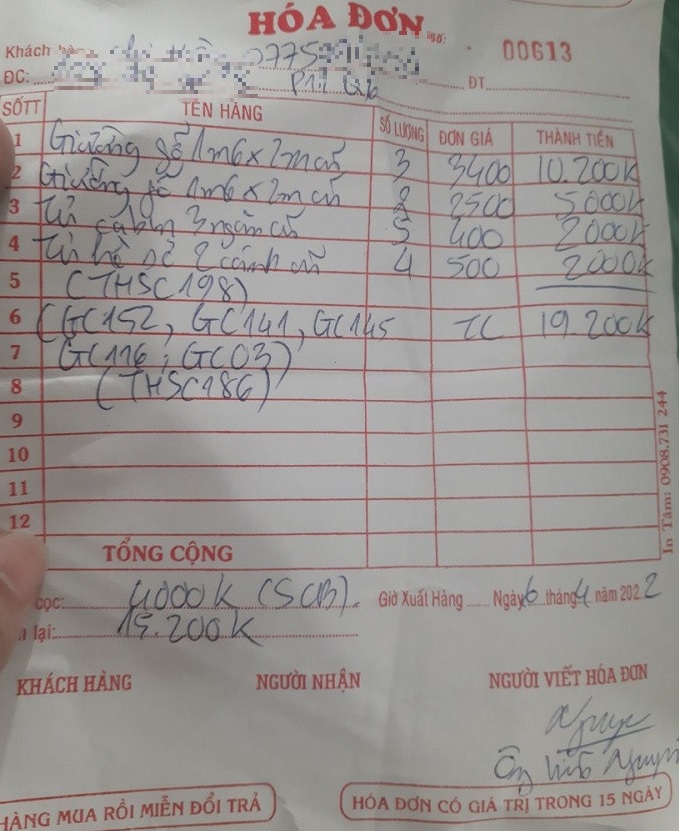 HÓA ĐƠN
Số: 00613
Khách hàng 0775
ĐC: P11 ĐT
SỐTT TÊN HÀNG SỐ LƯỢNG ĐƠN GIÁ THÀNH TIỀN
1 Giường gỗ 1m6 x 2m cũ 3 3400 10.200K
2 Giường gỗ 1m6 x 2m cũ 2 2500 5000K
3 Tủ cabin 3 ngăn cũ 5 400 2000K
4 Tủ hồ sơ 2 cánh cũ 4 500 2000K
5 (THSC198)
6 (GC152, GC141, GC145 TC 19.200K
7 GC116, GC03)
8 (THSC186)
9
10
11
12
TỔNG CỘNG
cọc: 4000K (SCB). Giờ Xuất Hàng Ngày 6 tháng 4 năm 2022
lại: 15.200K
KHÁCH HÀNG NGƯỜI NHẬN NGƯỜI VIẾT HÓA ĐƠN
HÀNG MUA RỒI MIỄN ĐỔI TRẢ
HÓA ĐƠN CÓ GIÁ TRỊ TRONG 15 NGÀY
In Tâm: 0908.731 244